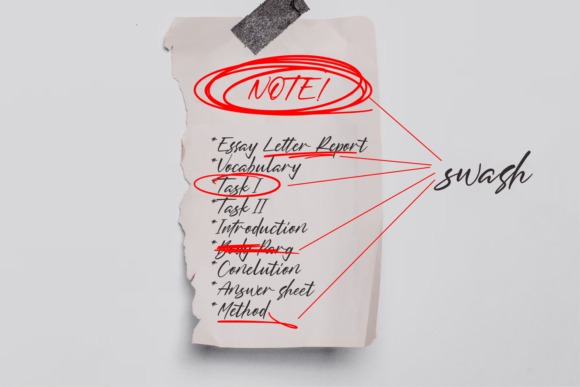 NOTE!
*Essay Letter Report
*Vocabulary
*Task I
*Task II
*Introduction
*Body Parg
*Conclution
*Answer sheet
*Method
swash